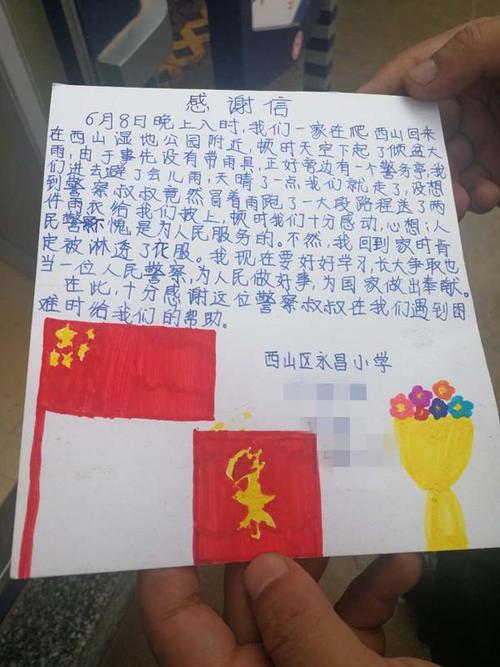 感谢信
6月8日晚上八时，我们一家在爬西山回来
在西山湿地公园附近，顿时天空下起了倾盆大
雨，由于事先没有带雨具，正好旁边有一个警务亭，我
们进去避了会儿雨，天晴了一点，我们就走了，没想
到警察叔叔竟然冒着雨跑了一大段路程送了两
件雨衣给我们披上，顿时我们十分感动，心想：人
民警察不愧是为人民服务的。不然，我回到家时肯
定被淋透了衣服。我现在要好好学习，长大争取也
当一位人民警察，为人民做好事，为国家做出奉献。
在此，十分感谢这位警察叔叔在我们遇到困
难时给我们的帮助。
西山区永昌小学